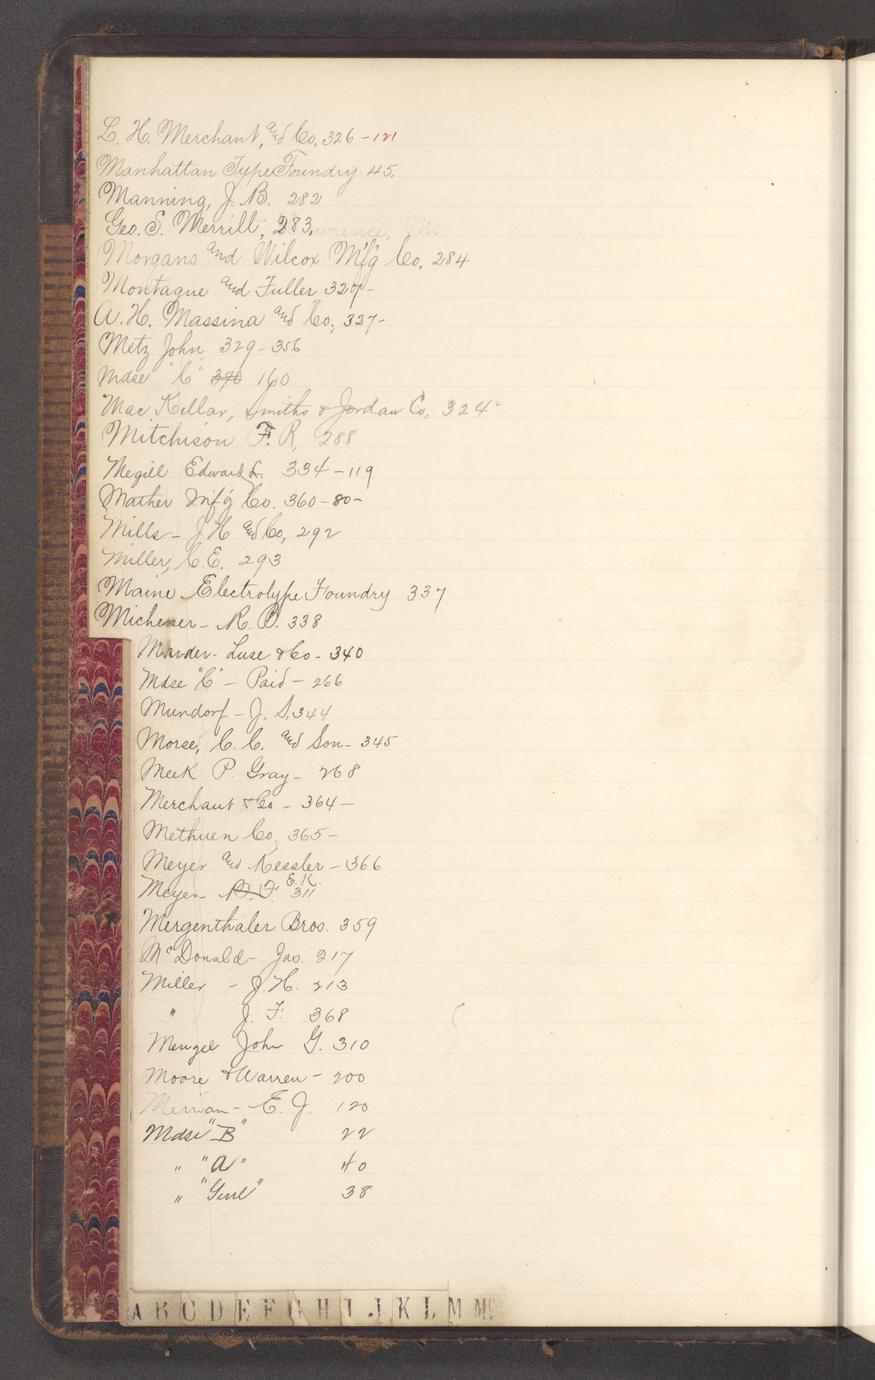 L. H. Merchant, and Co, 326-121
Manhattan Type Foundry 45.
Manning, J. B. 282
Geo. S. Merrill, 283,
Morgans and Wilcox M'f'g Co. 284
Montague and Fuller 327-
A. H. Massina and Co, 337-
Metz John, 329-356
Mdse "C" 390 160
Mac Kellar, Smiths & Jordan Co, 324-
Mitchison F. R, 288
Megill Edward L. 334-119
Mather M'f'g Co. 360-80-
Mills- J H and Co, 292
Miller, C. E. 293
Maine Electrotype Foundry 337
Michener- R. B. 338
Marder- Luse & Co- 340
Mdse "C" - Paid- 266
Mundorf- J. S. 344
Morse, C. C. and Son- 345
Meek P. Gray- 268
Merchant & Co - 364-
Methuen Co, 365-
Meyer and Kessler- 366
Meyer- E. K. 311
Mergenthaler Bros. 359
McDonald- Jas. 217
Miller - J. H. 213
" J. F. 368
Mengel John G. 310
Moore & Warren- 200
Merrian- E. J. 120
Mdse "B" 22
" "A" 40
" "Genl" 38
A B C D E F G H I J K L M Mc